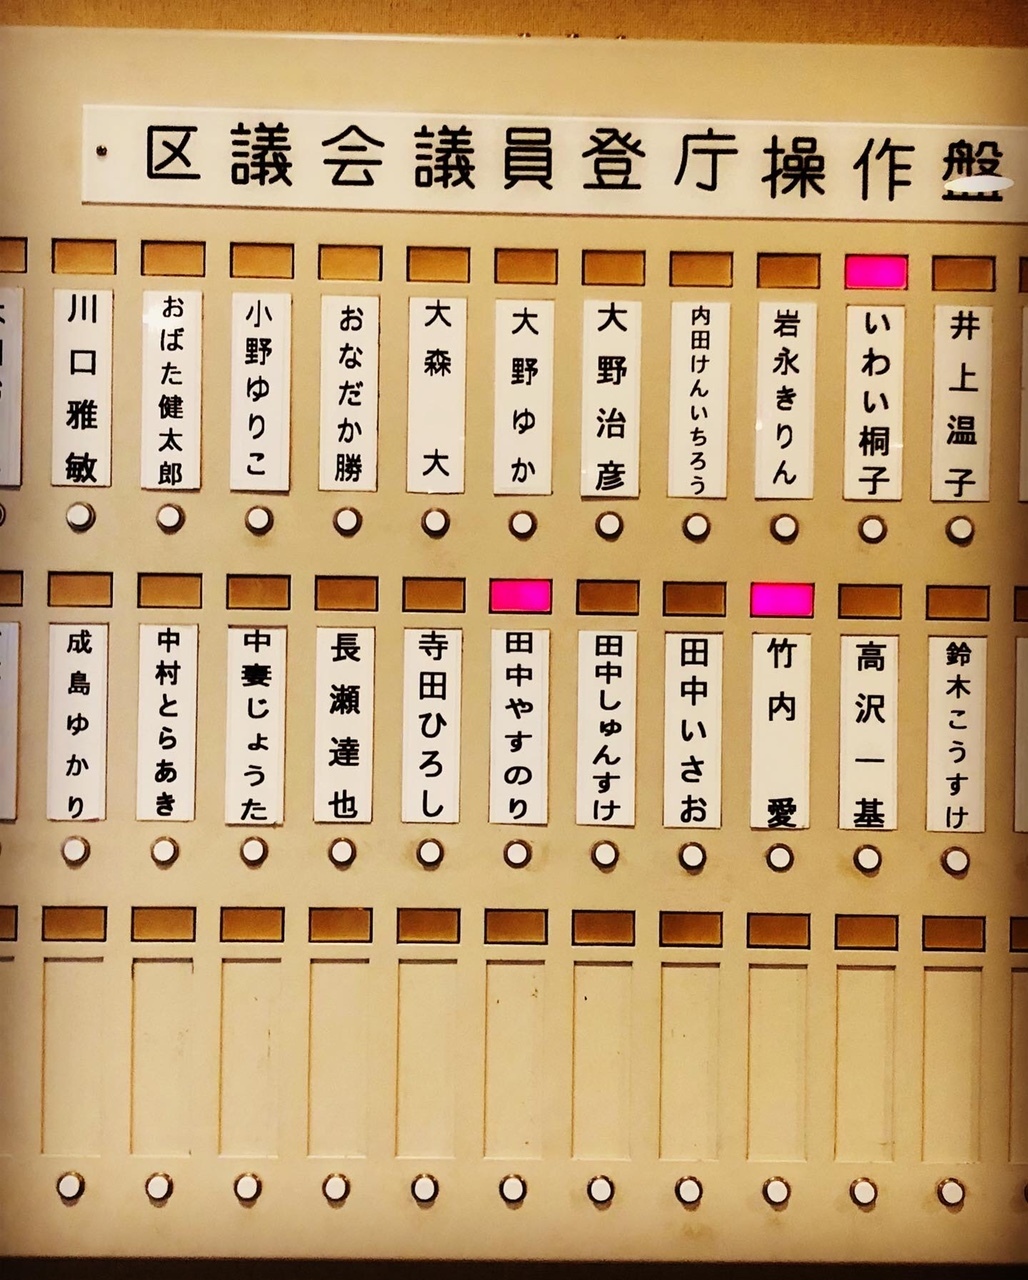 区議会議員登庁操作盤
井上温子
いわい桐子
岩永きりん
内田けんいちろう
大野治彦
大野ゆか
大森大
おなだか勝
小野ゆりこ
おばた健太郎
川口雅敏
鈴木こうすけ
高沢一基
竹内愛
田中いさお
田中しゅんすけ
田中やすのり
寺田ひろし
長瀬達也
中妻じょうた
中村とらあき
成島ゆかり